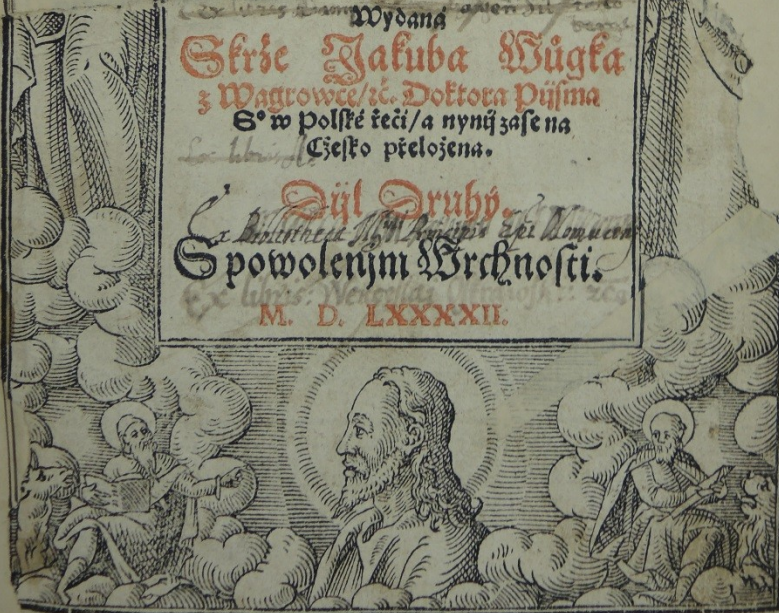 Ex libris
Wydaná
Skrże Jakuba Wůgka
z Wagrowce/ꝛč. Doktora Pijsma
Sº w Polské řeči/a nynij zase na
Cżesko přeložena.
Dijl Druhý.
Ex Bibliotheca
S powolenjm Wrchnosti.
Ex libris:
M. D. LXXXXII.